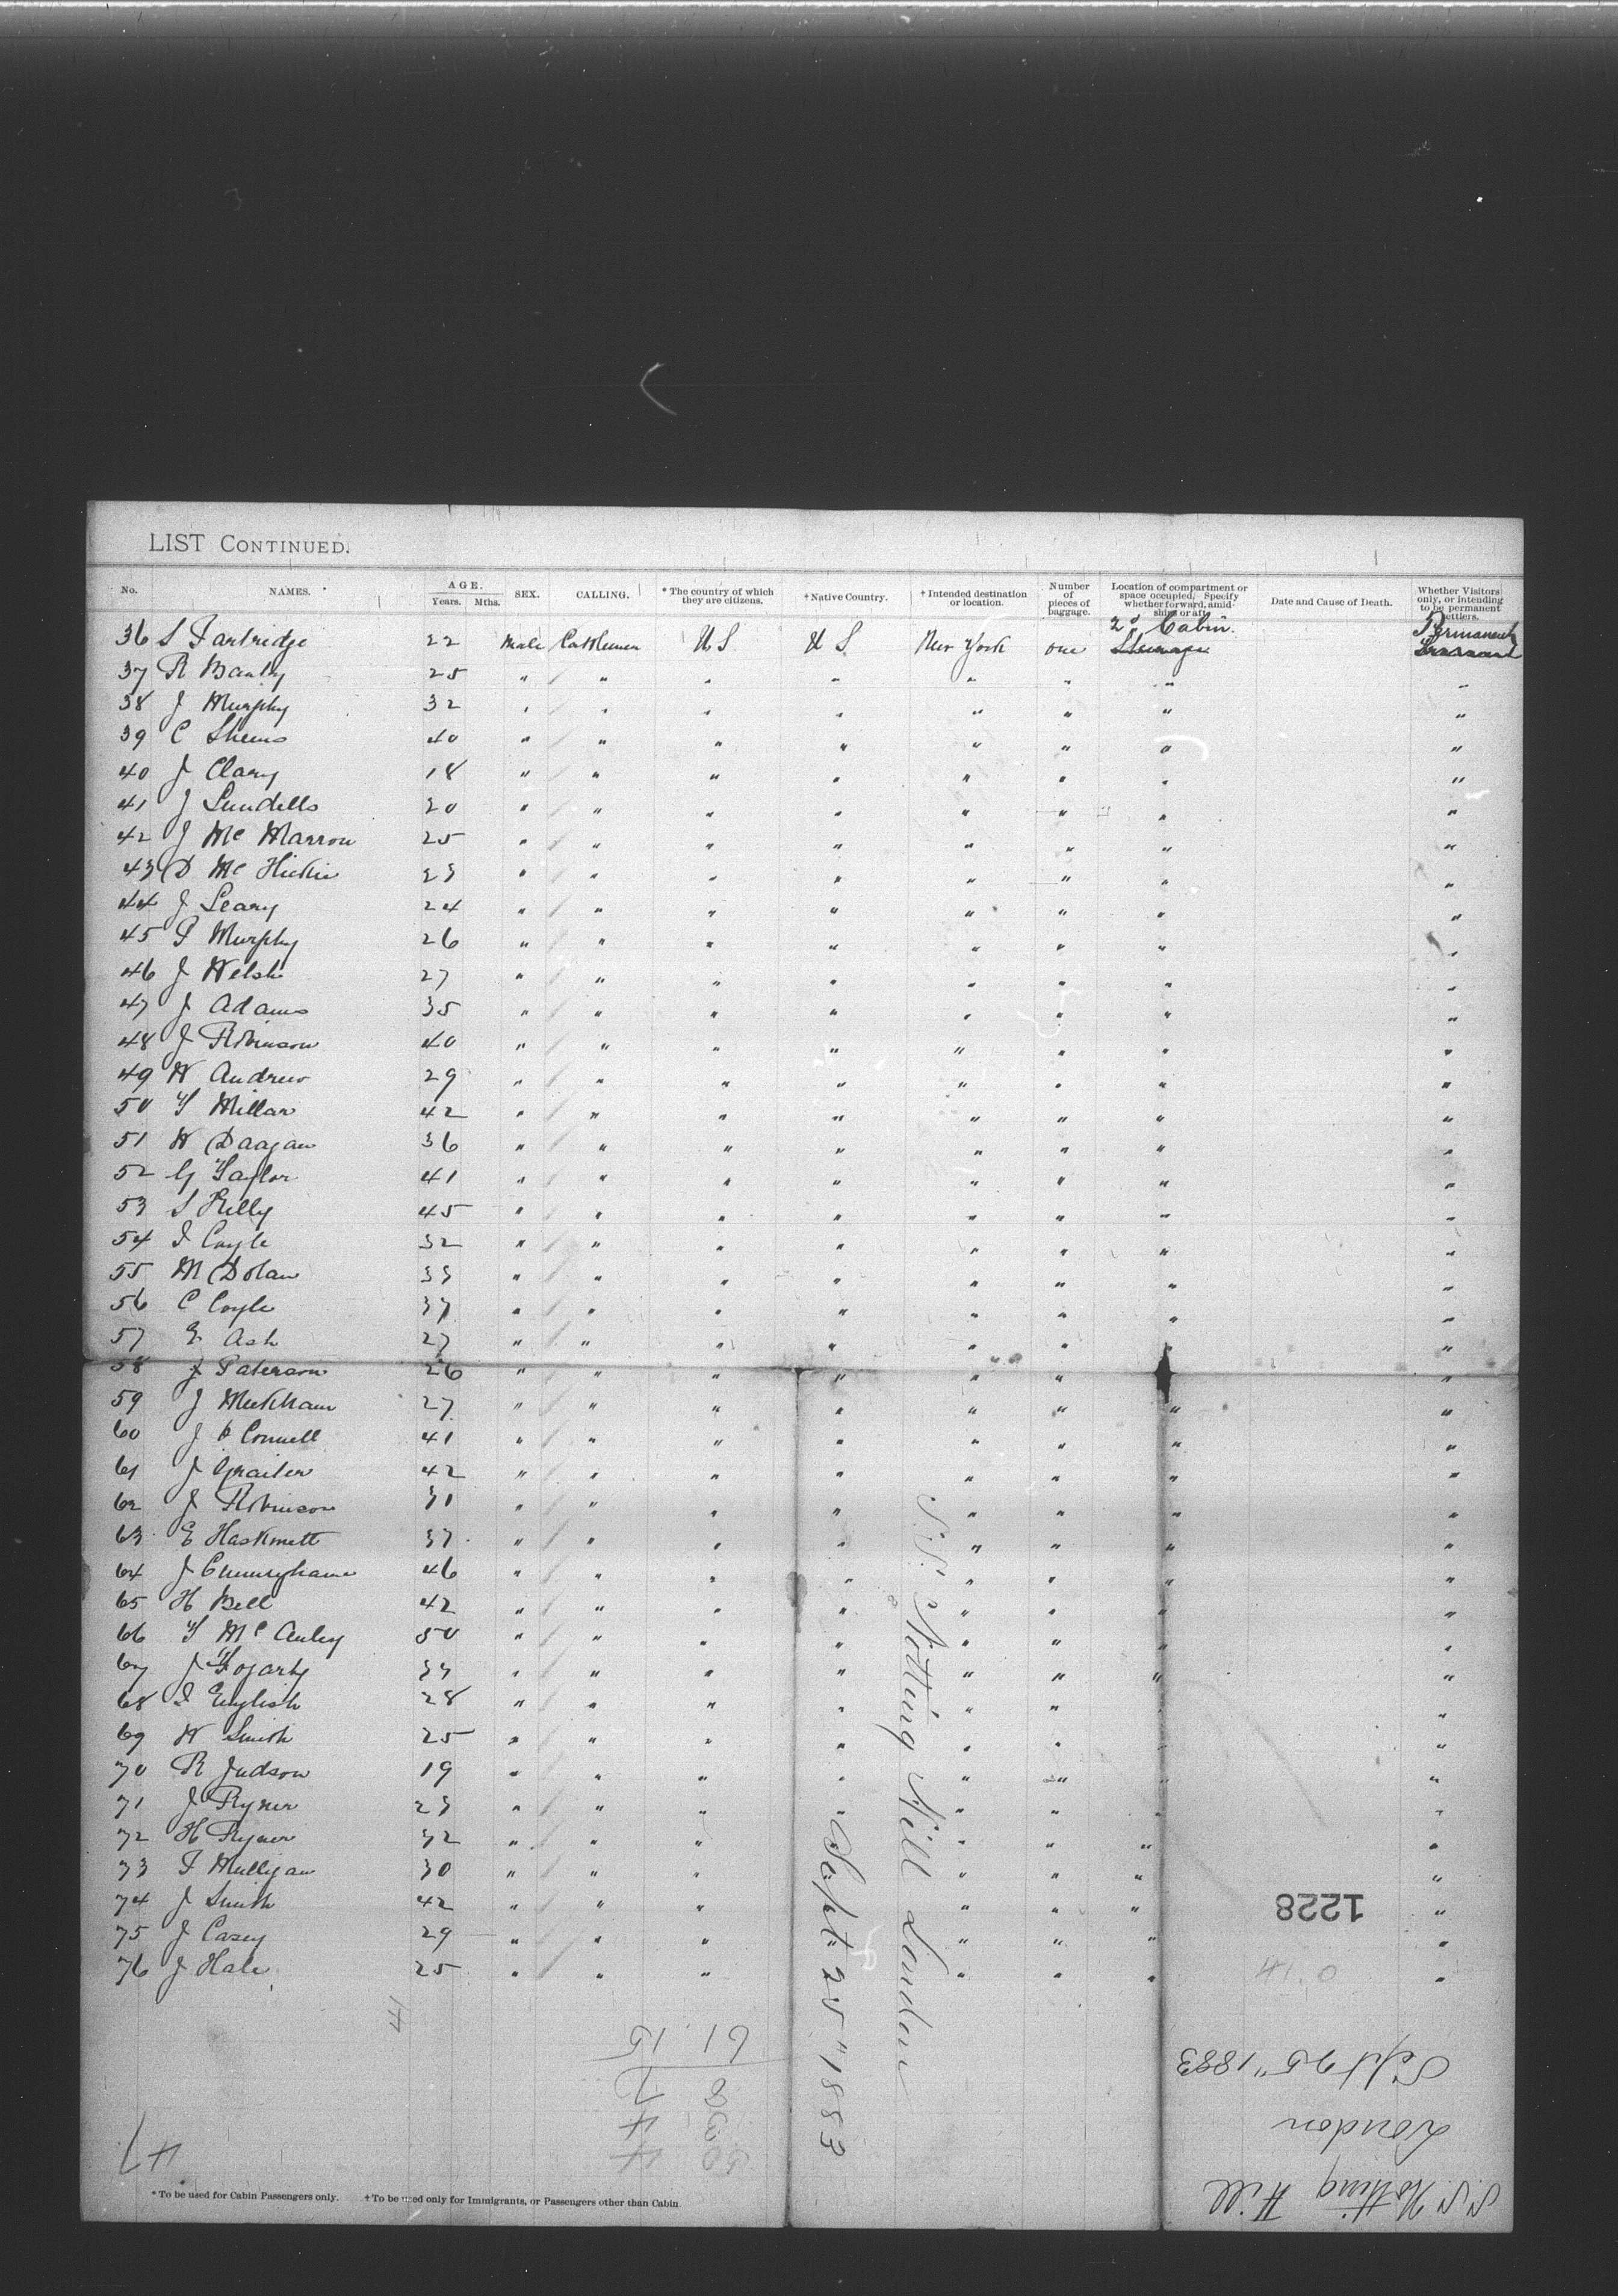 LIST CONTINUED.
No. NAMES. AGE. Years. Mths. SEX. CALLING. * The country of which they are citizens. † Native Country. † Intended destination or location. Number of pieces of baggage. Location of compartment or space occupied, Specify whether forward, amidships or aft. Date and Cause of Death. Whether Visitors only, or intending to be permanent settlers.
2d Cabin. Permanent
36 S Partridge 22 Male Cattlemen U S U S New York one Steerage
37 R 25 " " " " " " " "
38 J Murphy 32 " " " " " " " "
39 C 40 " " " " " " " "
40 J Clary 18 " " " " " " " "
41 J 30 " " " " " " " "
42 J Mc Marron 25 " " " " " " " "
43 D Mc Hickie 23 " " " " " " " "
44 J Leary 24 " " " " " " " "
45 P Murphy 26 " " " " " " " "
46 J Welsh 27 " " " " " " " "
47 J Adams 35 " " " " " " " "
48 J Robinson 40 " " " " " " " "
49 W Andrew 29 " " " " " " " "
50 T Millar 42 " " " " " " " "
51 W Daagan 36 " " " " " " " "
52 G Taylor 41 " " " " " " " "
53 S Kelly 45 " " " " " " " "
54 I Coyle 32 " " " " " " " "
55 M Dolan 33 " " " " " " " "
56 C Coyle 37 " " " " " " " "
57 E Ash 27 " " " " " " " "
58 J Paterson 26 " " " " " " " "
59 J 27 " " " " " " " "
60 J O Connell 41 " " " " " " " "
61 J 42 " " " " " " " "
62 J Robinson 31 " " " " " " " "
63 E Haskmett 37 " " " " " " " "
64 J Cunningham 46 " " " " " " " "
65 H Bell 42 " " " " " " " "
66 T Mc Auley 50 " " " " " " " "
67 J Fogarty 33 " " " " " " " "
68 I English 28 " " " " " " " "
69 W Smith 25 " " " " " " " "
70 R Judson 19 " " " " " " " "
71 J Ryner 23 " " " " " " " "
72 H Ryner 32 " " " " " " "
73 F Mulligan 30 " " " " " " "
74 J Smith 42 " " " " " " "
75 J Casey 29 " " " " " " "
76 J Hale 25 " " " " " " "
S.S. Notting Hill London
Sept 25" 1883
1228
41.0
S.S. Notting Hill
London
Sept 25" 1883
41
61 15
8 7
3 4
50 4
47
* To be used for Cabin Passengers only. † To be used only for Immigrants, or Passengers other than Cabin.